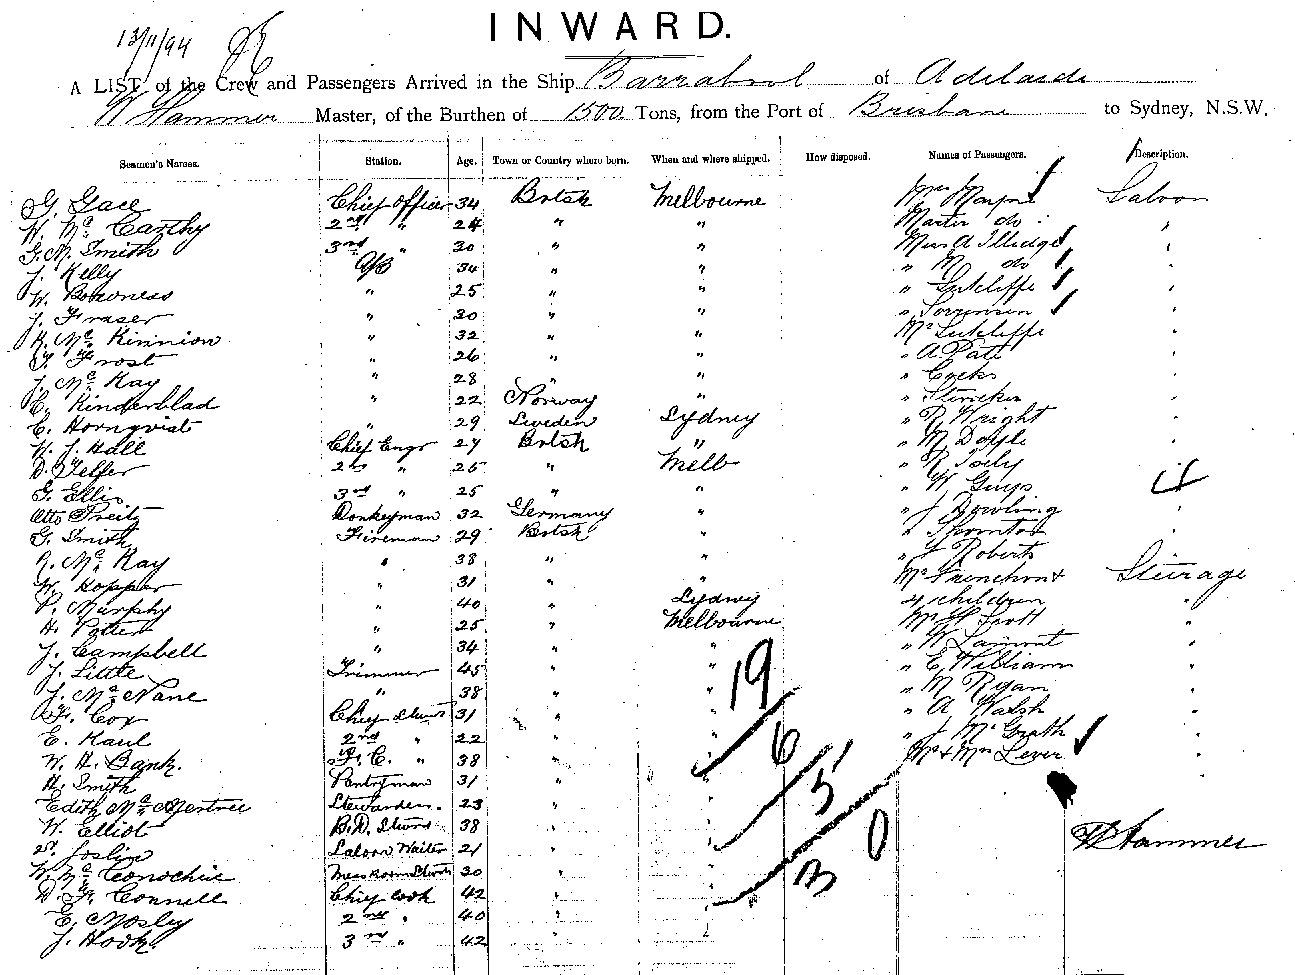 INWARD.
13/11/94
A LIST of the Crew and Passengers Arrived in the Ship Barrabool of Adelaide
W Hammer Master, of the Burthen of 1500 Tons, from the Port of Brisbane to Sydney, N.S.W.
Seamen's Names. Station. Age. Town or Country where born. When and where shipped. How disposed. Names of Passengers. Description.
G. Gace Chief Officer 34 Brtsh Melbourne Mrs Saloon
W. Mc Carthy 2nd " 24 " " Master do "
G. M. Smith 3rd " 30 " " Miss A Illidge "
J. Kelly AB 34 " " " do "
W. Bowness " 25 " " " Sutcliffe "
J. Fraser " 30 " " " Sorrensen "
R. Mc Kinnion " 32 " " Mr Sutcliffe "
Frost " 26 " " " A Pate "
J. Mc Kay " 28 " " " Cocks "
C. Kinderblad " 22 Norway " " "
C. Hornqvist " 29 Sweden Sydney " R Wright "
W. J. Hall Chief Engr 27 Brtsh " " M Doyle "
D. Telfer 2nd " 25 " Melb " R "
G. Ellis 3rd " 25 " " " W Guys 4
Otto Preitz Donkeyman 32 Germany " " J Dowling "
G. Smith Fireman 29 Brtsh " " Thornton "
R. Mc Kay " 38 " " " J Roberts "
W. Hopper " 31 " " Mr & Steerage
P. Murphy " 40 " Sydney 4 children "
H. Potter " 25 " Melbourne Mr Scott "
J. Campbell " 34 " " " W Lamont "
J. Little Trimmer 45 " " " E. William "
J. Mc Nane " 38 " " " M Ryan "
Cox Chief Stwd 31 " " " A Walsh "
E. Kaul 2nd " 22 " " " J McGrath "
W. H. Bank. F. C. " 38 " " Mr & Mrs Lever "
H. Smith Pantryman 31 " "
Edith Mc Stewardess. 23 " "
W. Elliot B.D. Stwd 38 " "
Joslin Saloon Waiter 21 " "
W. Mc Conochie Messroom Stwd 30 " "
D. F. Connell Chief Cook 42 " "
E. Mosley 2nd " 40 " "
J. Hook. 3rd " 42 "
19
6
5
0
3
W Hammer